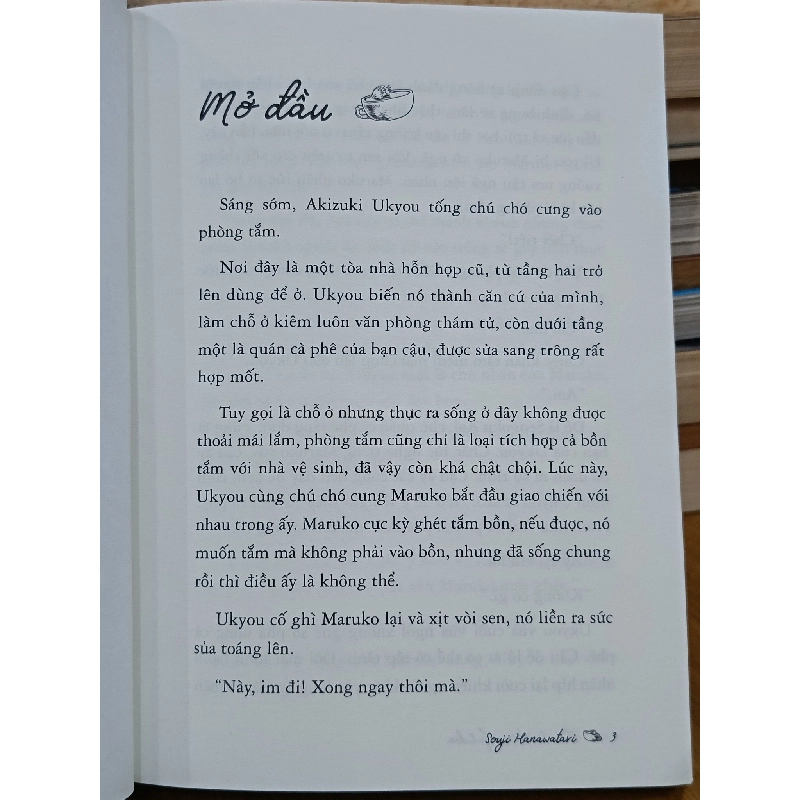 Mở đầu
Sáng sớm, Akizuki Ukyou tống chú chó cưng vào
phòng tắm.
Nơi đây là một tòa nhà hỗn hợp cũ, từ tầng hai trở
lên dùng để ở. Ukyou biến nó thành căn cứ của mình,
làm chỗ ở kiêm luôn văn phòng thám tử, còn dưới tầng
một là quán cà phê của bạn cậu, được sửa sang trông rất
hợp mốt.
Tuy gọi là chỗ ở nhưng thực ra sống ở đây không được
thoải mái lắm, phòng tắm cũng chỉ là loại tích hợp cả bồn
tắm với nhà vệ sinh, đã vậy còn khá chật chội. Lúc này,
Ukyou cùng chú chó cưng Maruko bắt đầu giao chiến với
nhau trong ấy. Maruko cực kỳ ghét tắm bồn, nếu được, nó
muốn tắm mà không phải vào bồn, nhưng đã sống chung
rồi thì điều ấy là không thể.
Ukyou cố ghì Maruko lại và xịt vòi sen, nó liền ra sức
sủa toáng lên.
“Này, im đi! Xong ngay thôi mà.”
Souji Hanawatari 3